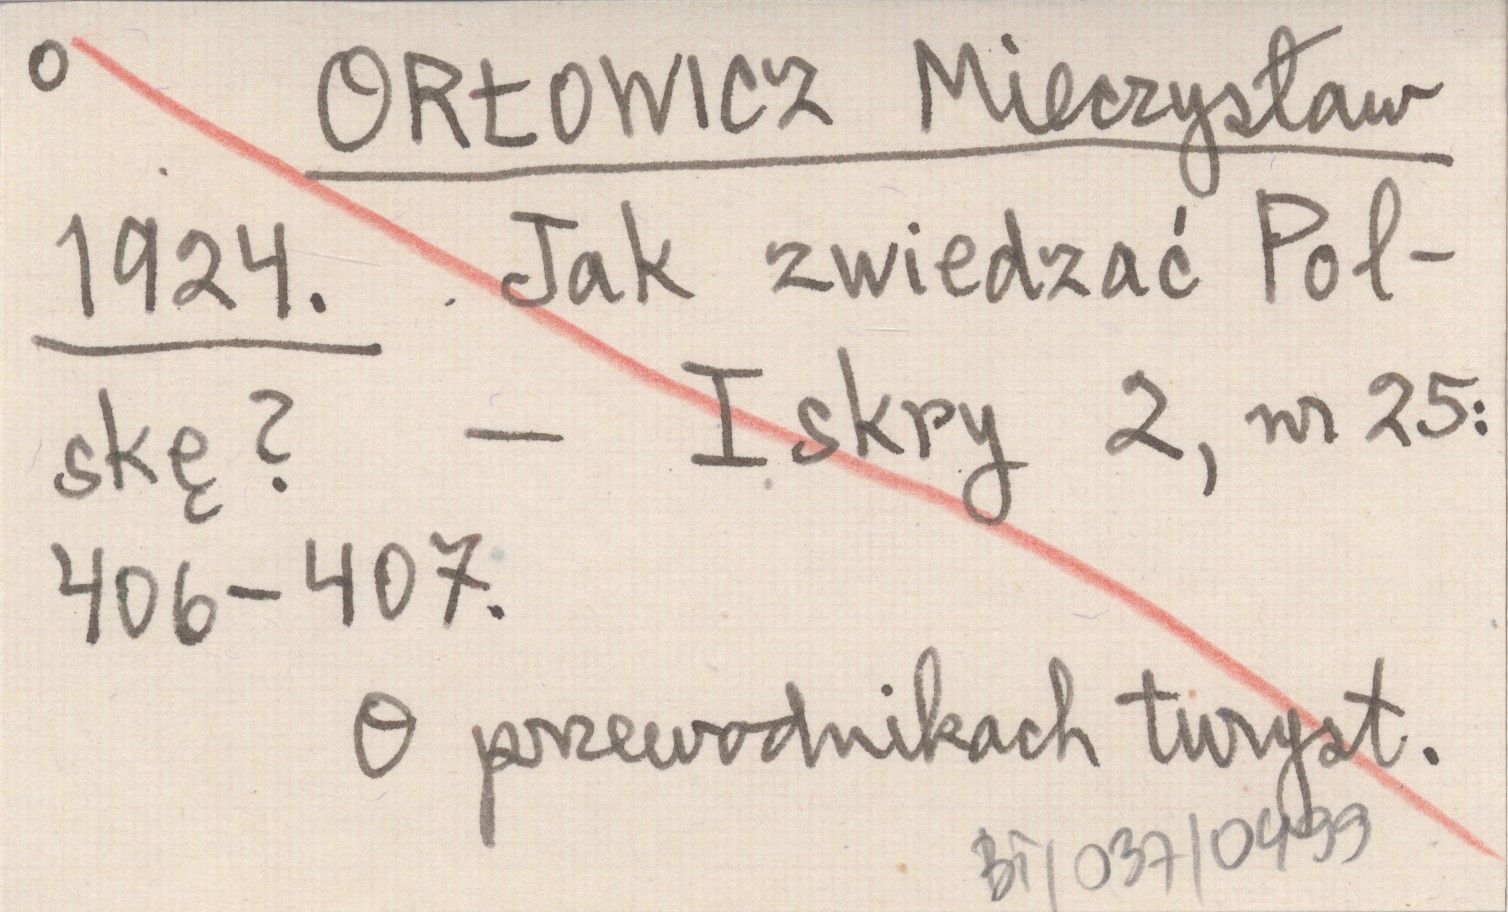 O ORŁOWICZ Mieczysław
1924. Jak zwiedzać Pol-
skę? — Iskry 2, nr 25:
406-407.
O przewodnikach turyst.
BT/037/0499